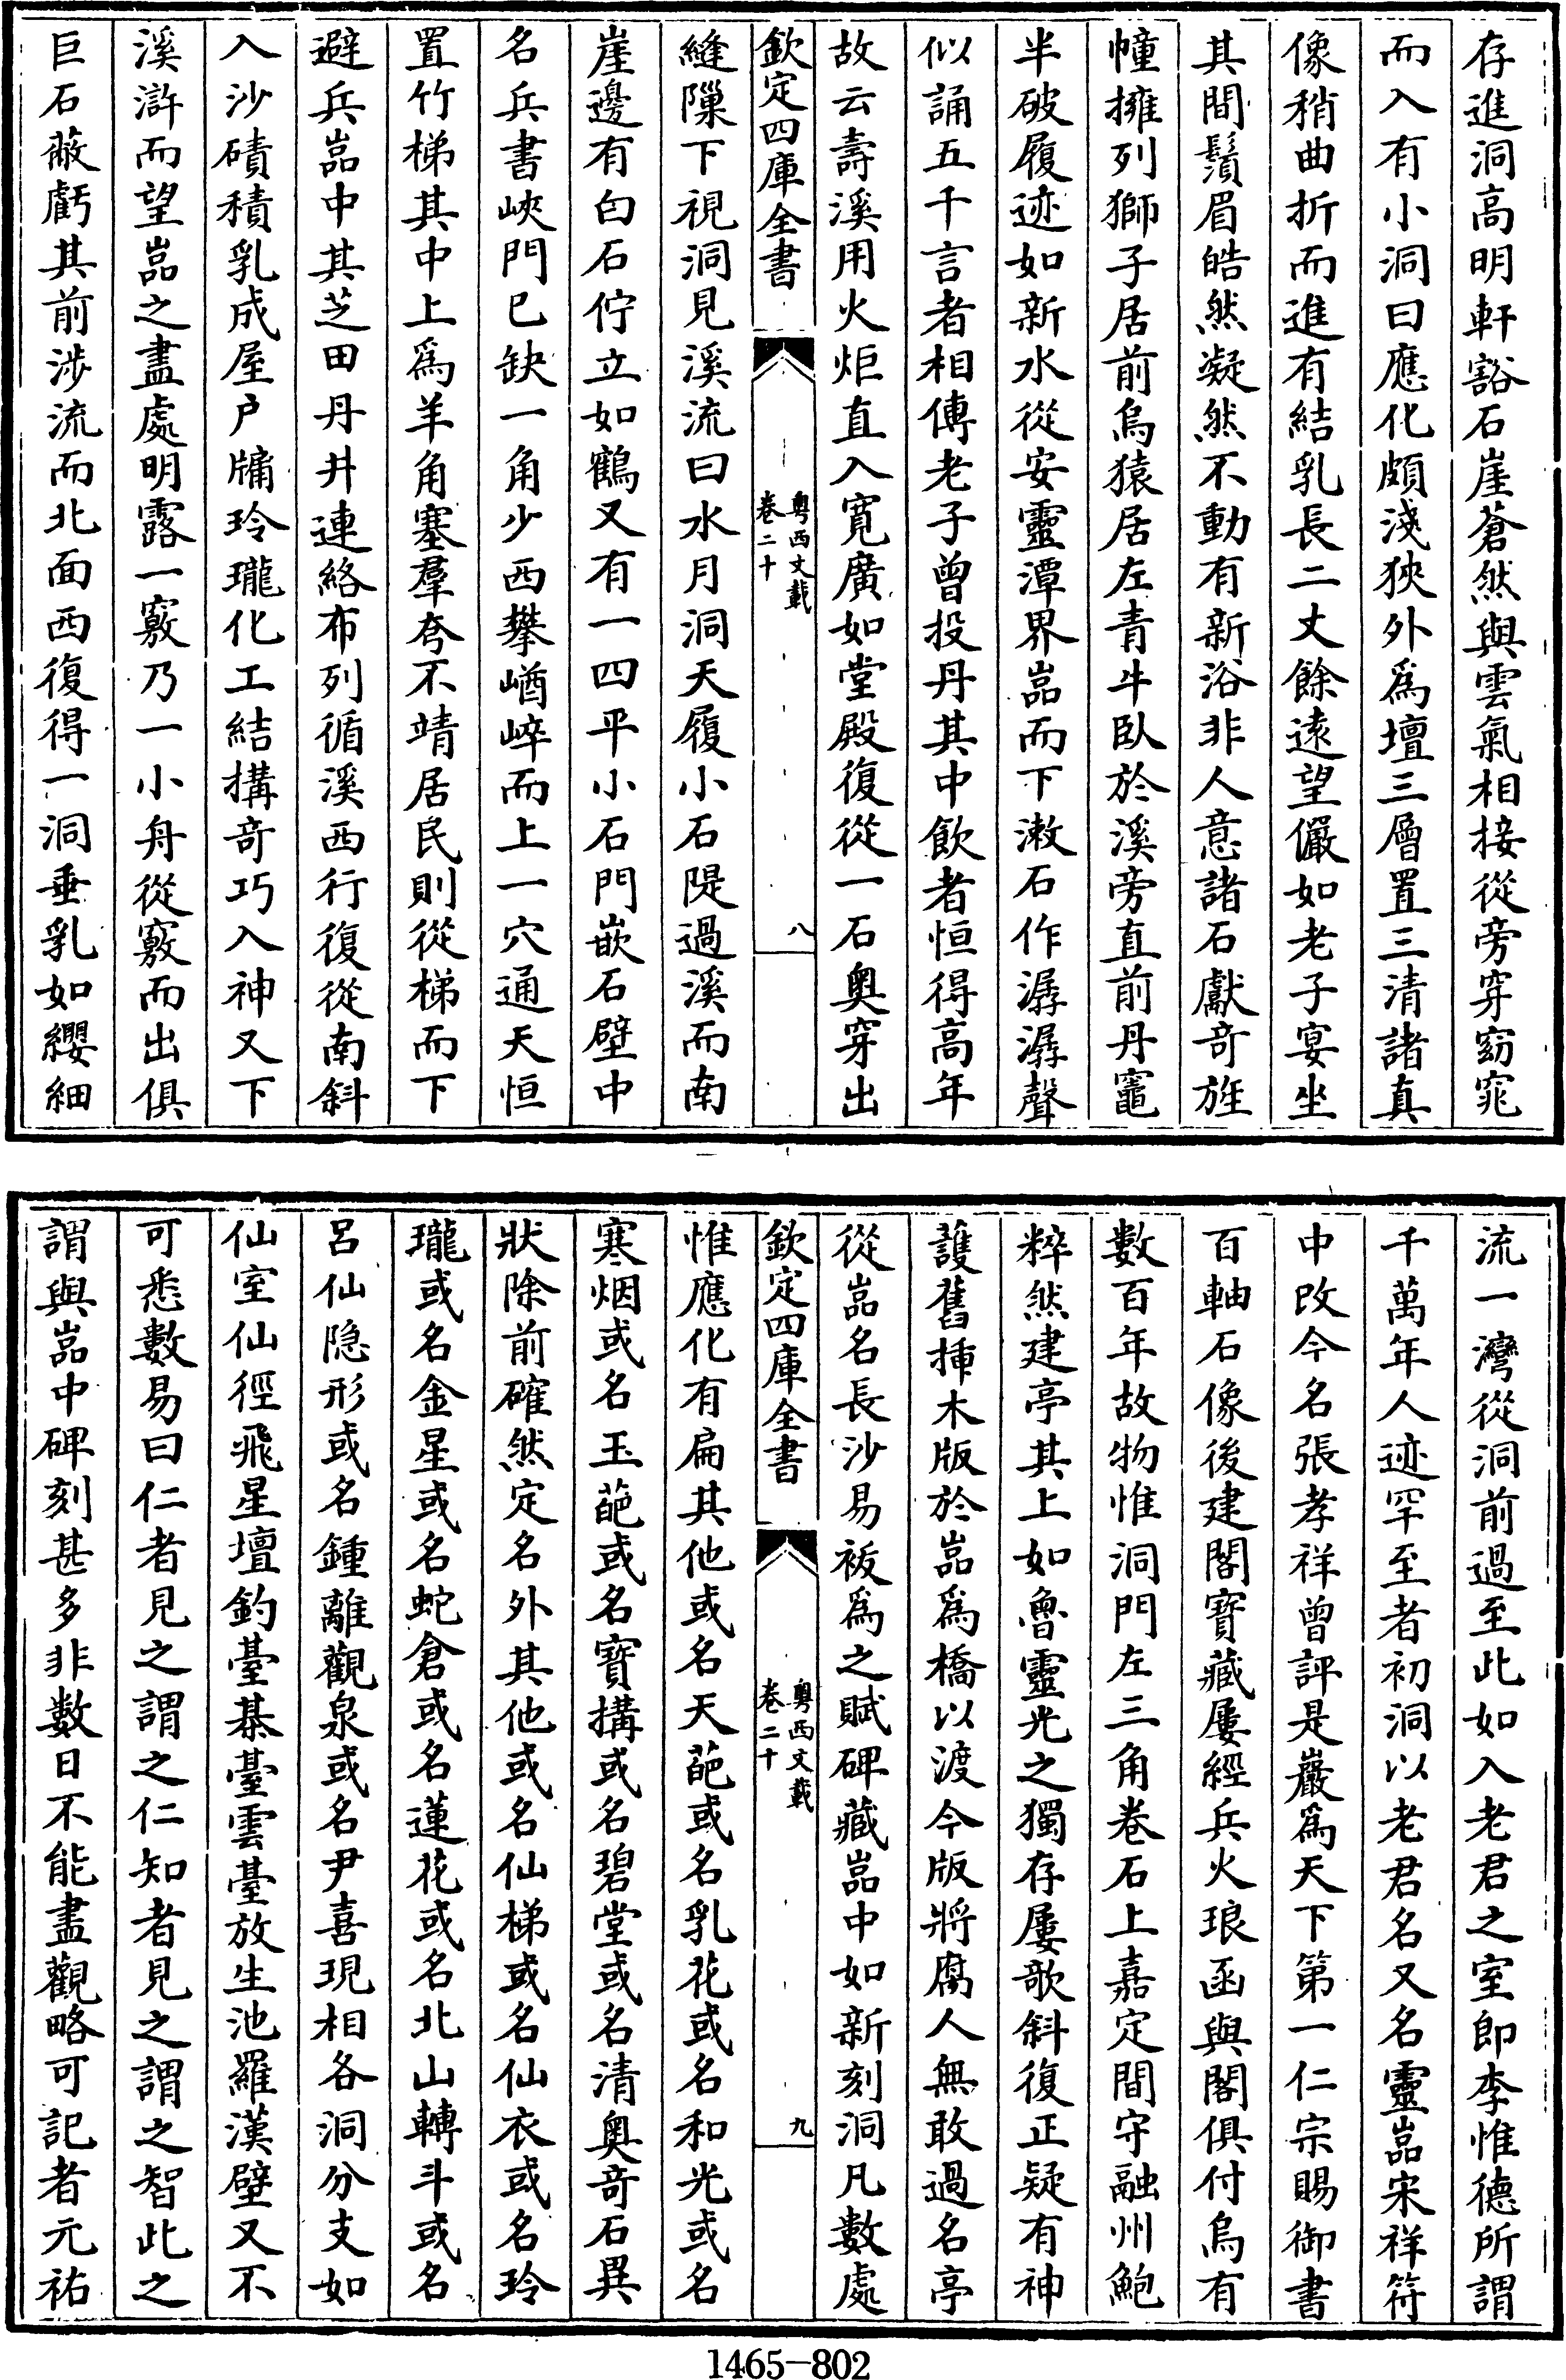 存進洞高明軒豁石崖蒼然與雲氣相接從旁穿窈窕
而入有小洞曰應化頗淺狹外為壇三層置三清諸真
像稍曲折而進有結乳長二丈餘遠望儼如老子宴坐
其間鬚眉皓然凝然不動有新浴非人意諸石獻奇旌
幢擁列獅子居前烏猿居左青牛臥於溪旁直前丹竈
半破履迹如新水從安靈潭界嵓而下漱石作潺潺聲
似誦五千言者相傳老子曾投丹其中飲者恒得高年
故云壽溪用火炬直入寬廣如堂殿復從一石奧穿出
欽定四庫全書
粵西文載
卷二十
八
縫隟下視洞見溪流曰水月洞天履小石隄過溪而南
崖邊有白石佇立如鶴又有一四平小石門嵌石壁中
名兵書峽門已缺一角少西攀崷崪而上一穴通天恒
置竹梯其中上為羊角塞羣夸不靖居民則從梯而下
避兵嵓中其芝田丹井連絡布列循溪西行復從南斜
入沙磧積乳成屋戶牖玲瓏化工結搆奇巧入神又下
溪滸而望嵓之盡處明露一竅乃一小舟從竅而出俱
巨石蔽虧其前涉流而北面西復得一洞垂乳如纓細
流一灣從洞前過至此如入老君之室即李惟德所謂
千萬年人迹罕至者初洞以老君名又名靈嵓宋祥符
中改今名張孝祥曾評是巖為天下第一仁宗賜御書
百軸石像後建閣寶藏屢經兵火琅函與閣俱付烏有
數百年故物惟洞門左三角卷石上嘉定間守融州鮑
粹然建亭其上如魯靈光之獨存屢欹斜復正疑有神
護舊揷木版於嵓為橋以渡今版將腐人無敢過名亭
從嵓名長沙易祓為之賦碑藏嵓中如新刻洞凡數處
欽定四庫全書
粵西文載
卷二十
九
惟應化有扁其他或名天葩或名乳花或名和光或名
寒烟或名玉葩或名寶搆或名碧堂或名清奧奇石異
狀除前確然定名外其他或名仙梯或名仙衣或名玲
瓏或名金星或名蛇倉或名蓮花或名北山轉斗或名
呂仙隱形或名鍾離觀泉或名尹喜現相各洞分支如
仙室仙徑飛星壇釣臺棊臺雲臺放生池羅漢壁又不
可悉數易曰仁者見之謂之仁知者見之謂之智此之
謂與嵓中碑刻甚多非數日不能盡觀略可記者元祐
1465-802